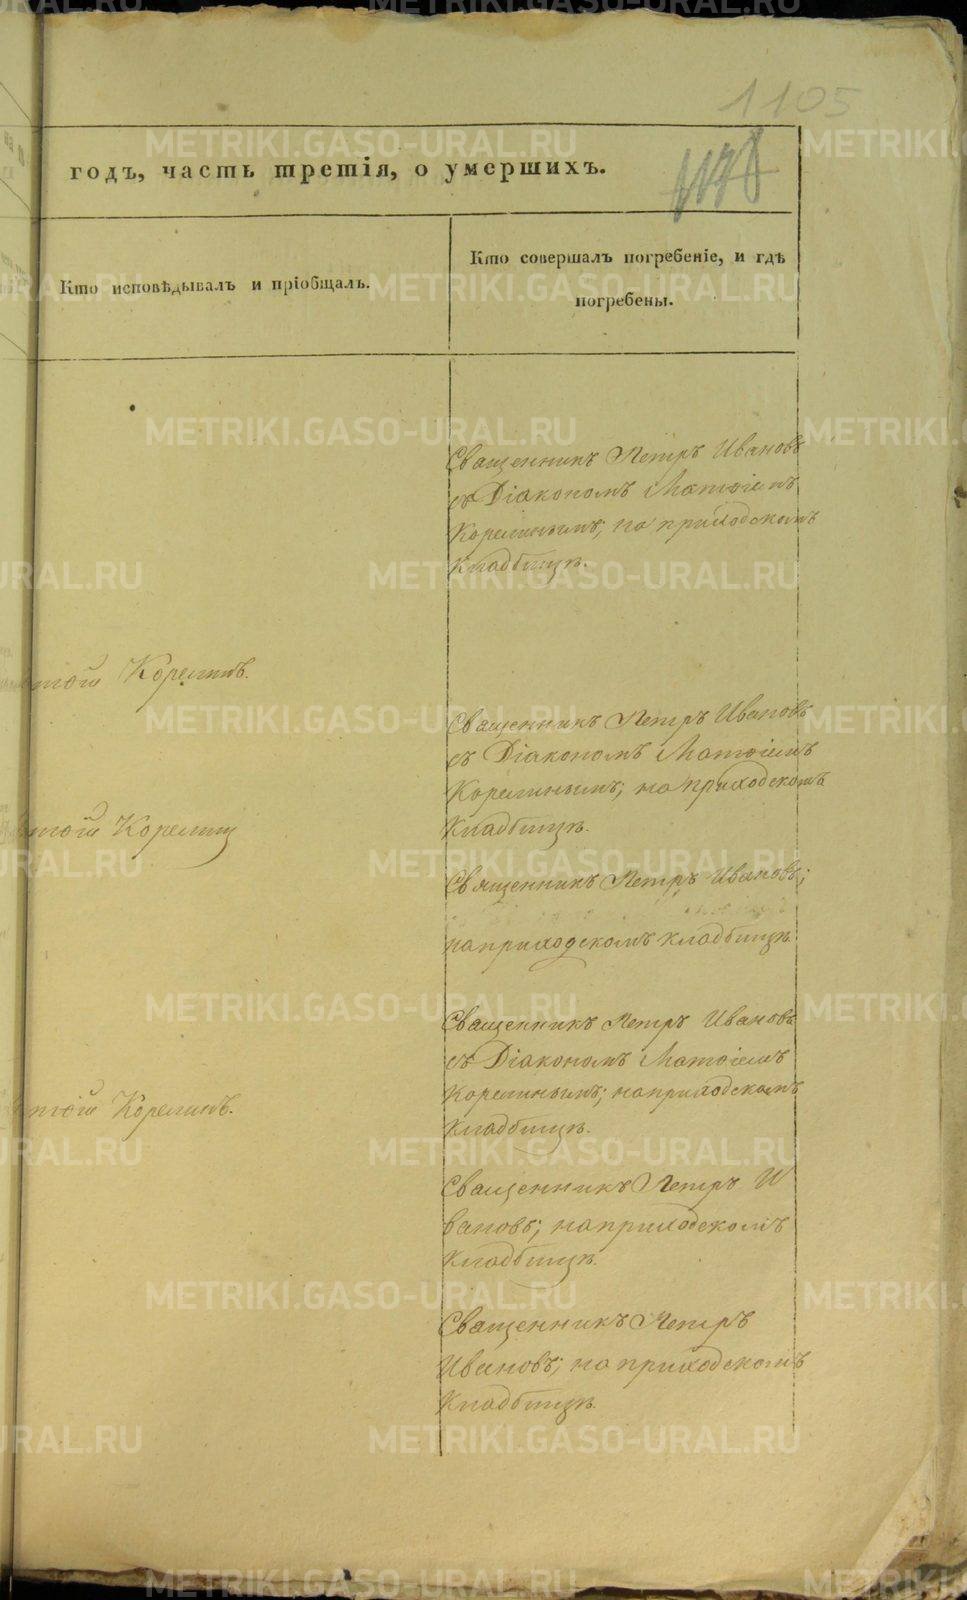 1105
годъ, часть третія, о умершихъ.
Кто исповѣдывалъ и пріобщалъ.
Кто совершалъ погребеніе, и гдѣ
погребены.
Священникъ Петръ Ивановъ
съ Діакономъ Матѳіемъ
Корелинымъ; на приходскомъ
кладбищѣ.
Корелинъ.
Священникъ Петръ Ивановъ
съ Діакономъ Матѳіемъ
Корелинымъ; на приходскомъ
кладбищѣ.
Корелин
Священникъ Петръ Ивановъ;
на приходскомъ кладбищѣ.
Священникъ Петръ Ивановъ
съ Діакономъ Матѳіемъ
Корелинымъ; на приходскомъ
кладбищѣ.
Корелинъ.
Священникъ Петръ И
вановъ; на приходскомъ
кладбищѣ.
Священникъ Петръ
Ивановъ; на приходскомъ
кладбищѣ.
METRIKI.GASO-URAL.RU